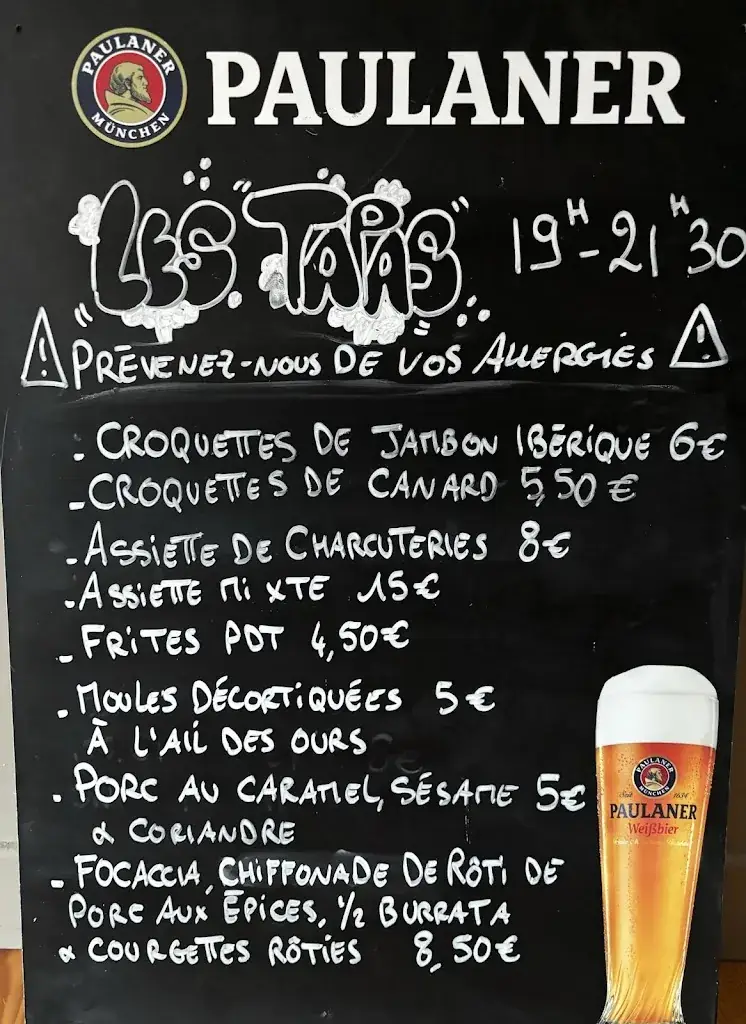 PAULANER
MÜNCHEN
PAULANER
"LES TAPAS" 19H-21H30
PRÉVENEZ-NOUS DE VOS ALLERGIES
- CROQUETTES DE JAMBON IBÉRIQUE 6€
- CROQUETTES DE CANARD 5,50€
- ASSIETTE DE CHARCUTERIES 8€
- ASSIETTE MIXTE 15€
- FRITES POT 4,50€
- MOULES DÉCORTIQUÉES 5€
À L'AIL DES OURS
- PORC AU CARAMEL, SÉSAME 5€
& CORIANDRE
- FOCACCIA, CHIFFONADE DE RÔTI DE
PORC AUX ÉPICES, 1/2 BURRATA
& COURGETTES RÔTIES 8,50€
PAULANER
MÜNCHEN
Seit 1634
PAULANER
Weißbier